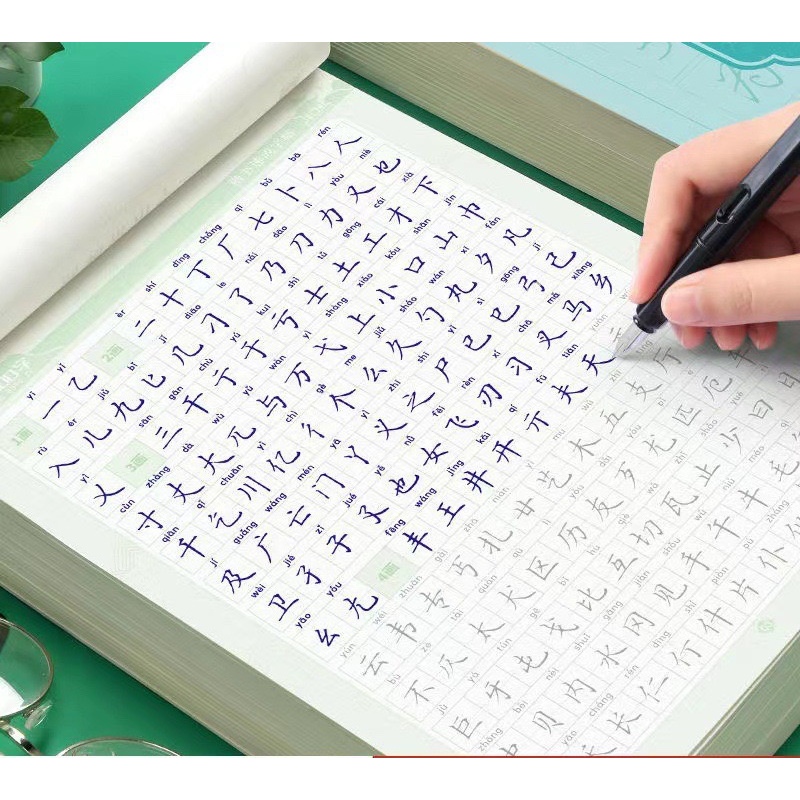 yī yǐ èr shí dīng chǎng qī bǔ bā rén
1画 一 乙 2画 二 十 丁 厂 七 卜 八 人
rù ér jiǔ bǐ jī diāo le nǎi dāo lì yòu niè
入 儿 九 匕 几 刁 了 乃 刀 力 又 乜
yì sān gān chù yú kuī shì tǔ gōng cái xià
乂 3画 三 干 亍 于 亏 士 土 工 才 下
cùn zhàng dà wù yǔ wàn yì shàng xiǎo kǒu shān jīn
寸 丈 大 兀 与 万 弋 上 小 口 山 巾
qiān qǐ chuān yì chì gè me jiǔ sháo wán xī fán
千 乞 川 亿 彳 个 么 久 勺 丸 夕 凡
jí guǎng wáng mén yā yì zhī shī yǐ sì gōng jǐ
及 广 亡 门 丫 义 之 尸 已 巳 弓 己
wèi jié zǐ jué yě nǚ fēi rèn xí chā mǎ xiāng
卫 孑 子 孓 也 女 飞 刃 习 叉 马 乡
yāo yóu fēng wáng jǐng kāi qí fū tiān yuán
幺 尢 4画 丰 王 井 开 亓 夫 天 元
yún wéi zhuān gài zhā niàn yì mù wǔ zhī tīng
云 韦 专 丐 扎 廿 艺 木 五 支 厅
bù zè tài quǎn qū lì yǒu dǎi yóu pǐ è
不 仄 太 犬 区 历 友 歹 尤 匹 厄 车
jù yá tún gē bǐ hù qiē wǎ zhǐ shǎo yuē
巨 牙 屯 戈 比 互 切 瓦 止 少 曰 日
zhōng bèi nèi shuǐ gāng jiàn shǒu wǔ niú máo
中 贝 内 水 冈 见 手 午 牛 毛
yāo cháng rén dīng shí piàn pū
长 仁 仃 什 片 仆